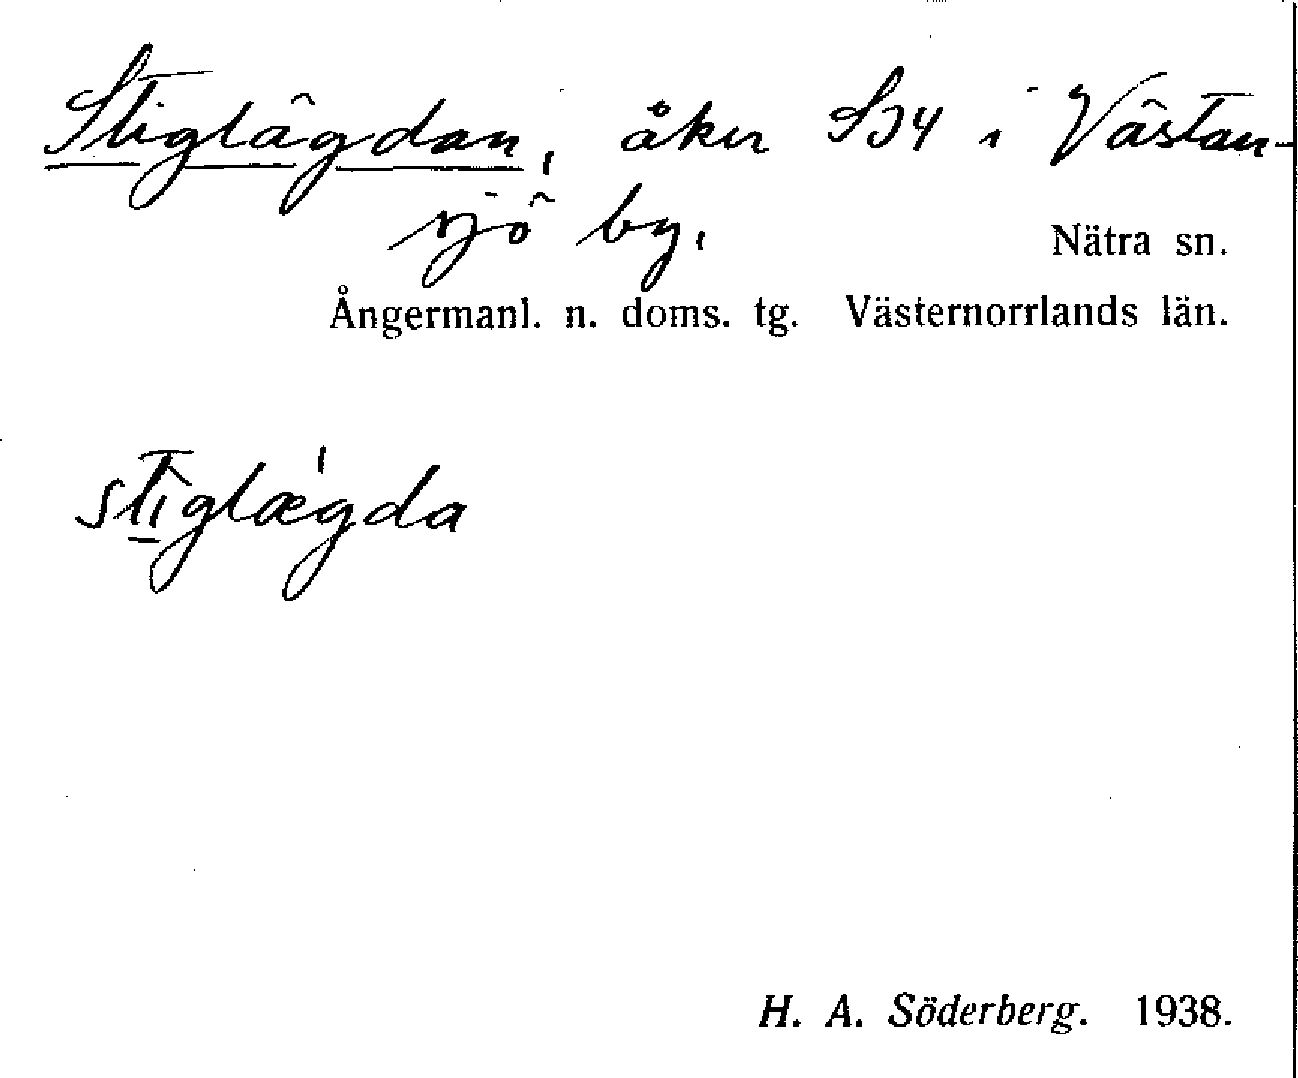 Stiglägdan, åker S34 i Västan-
sjö by.
Nätra sn.
Ångermanl. n. doms. tg. Västernorrlands län.
stìglǽgda
H. A. Söderberg. 1938.